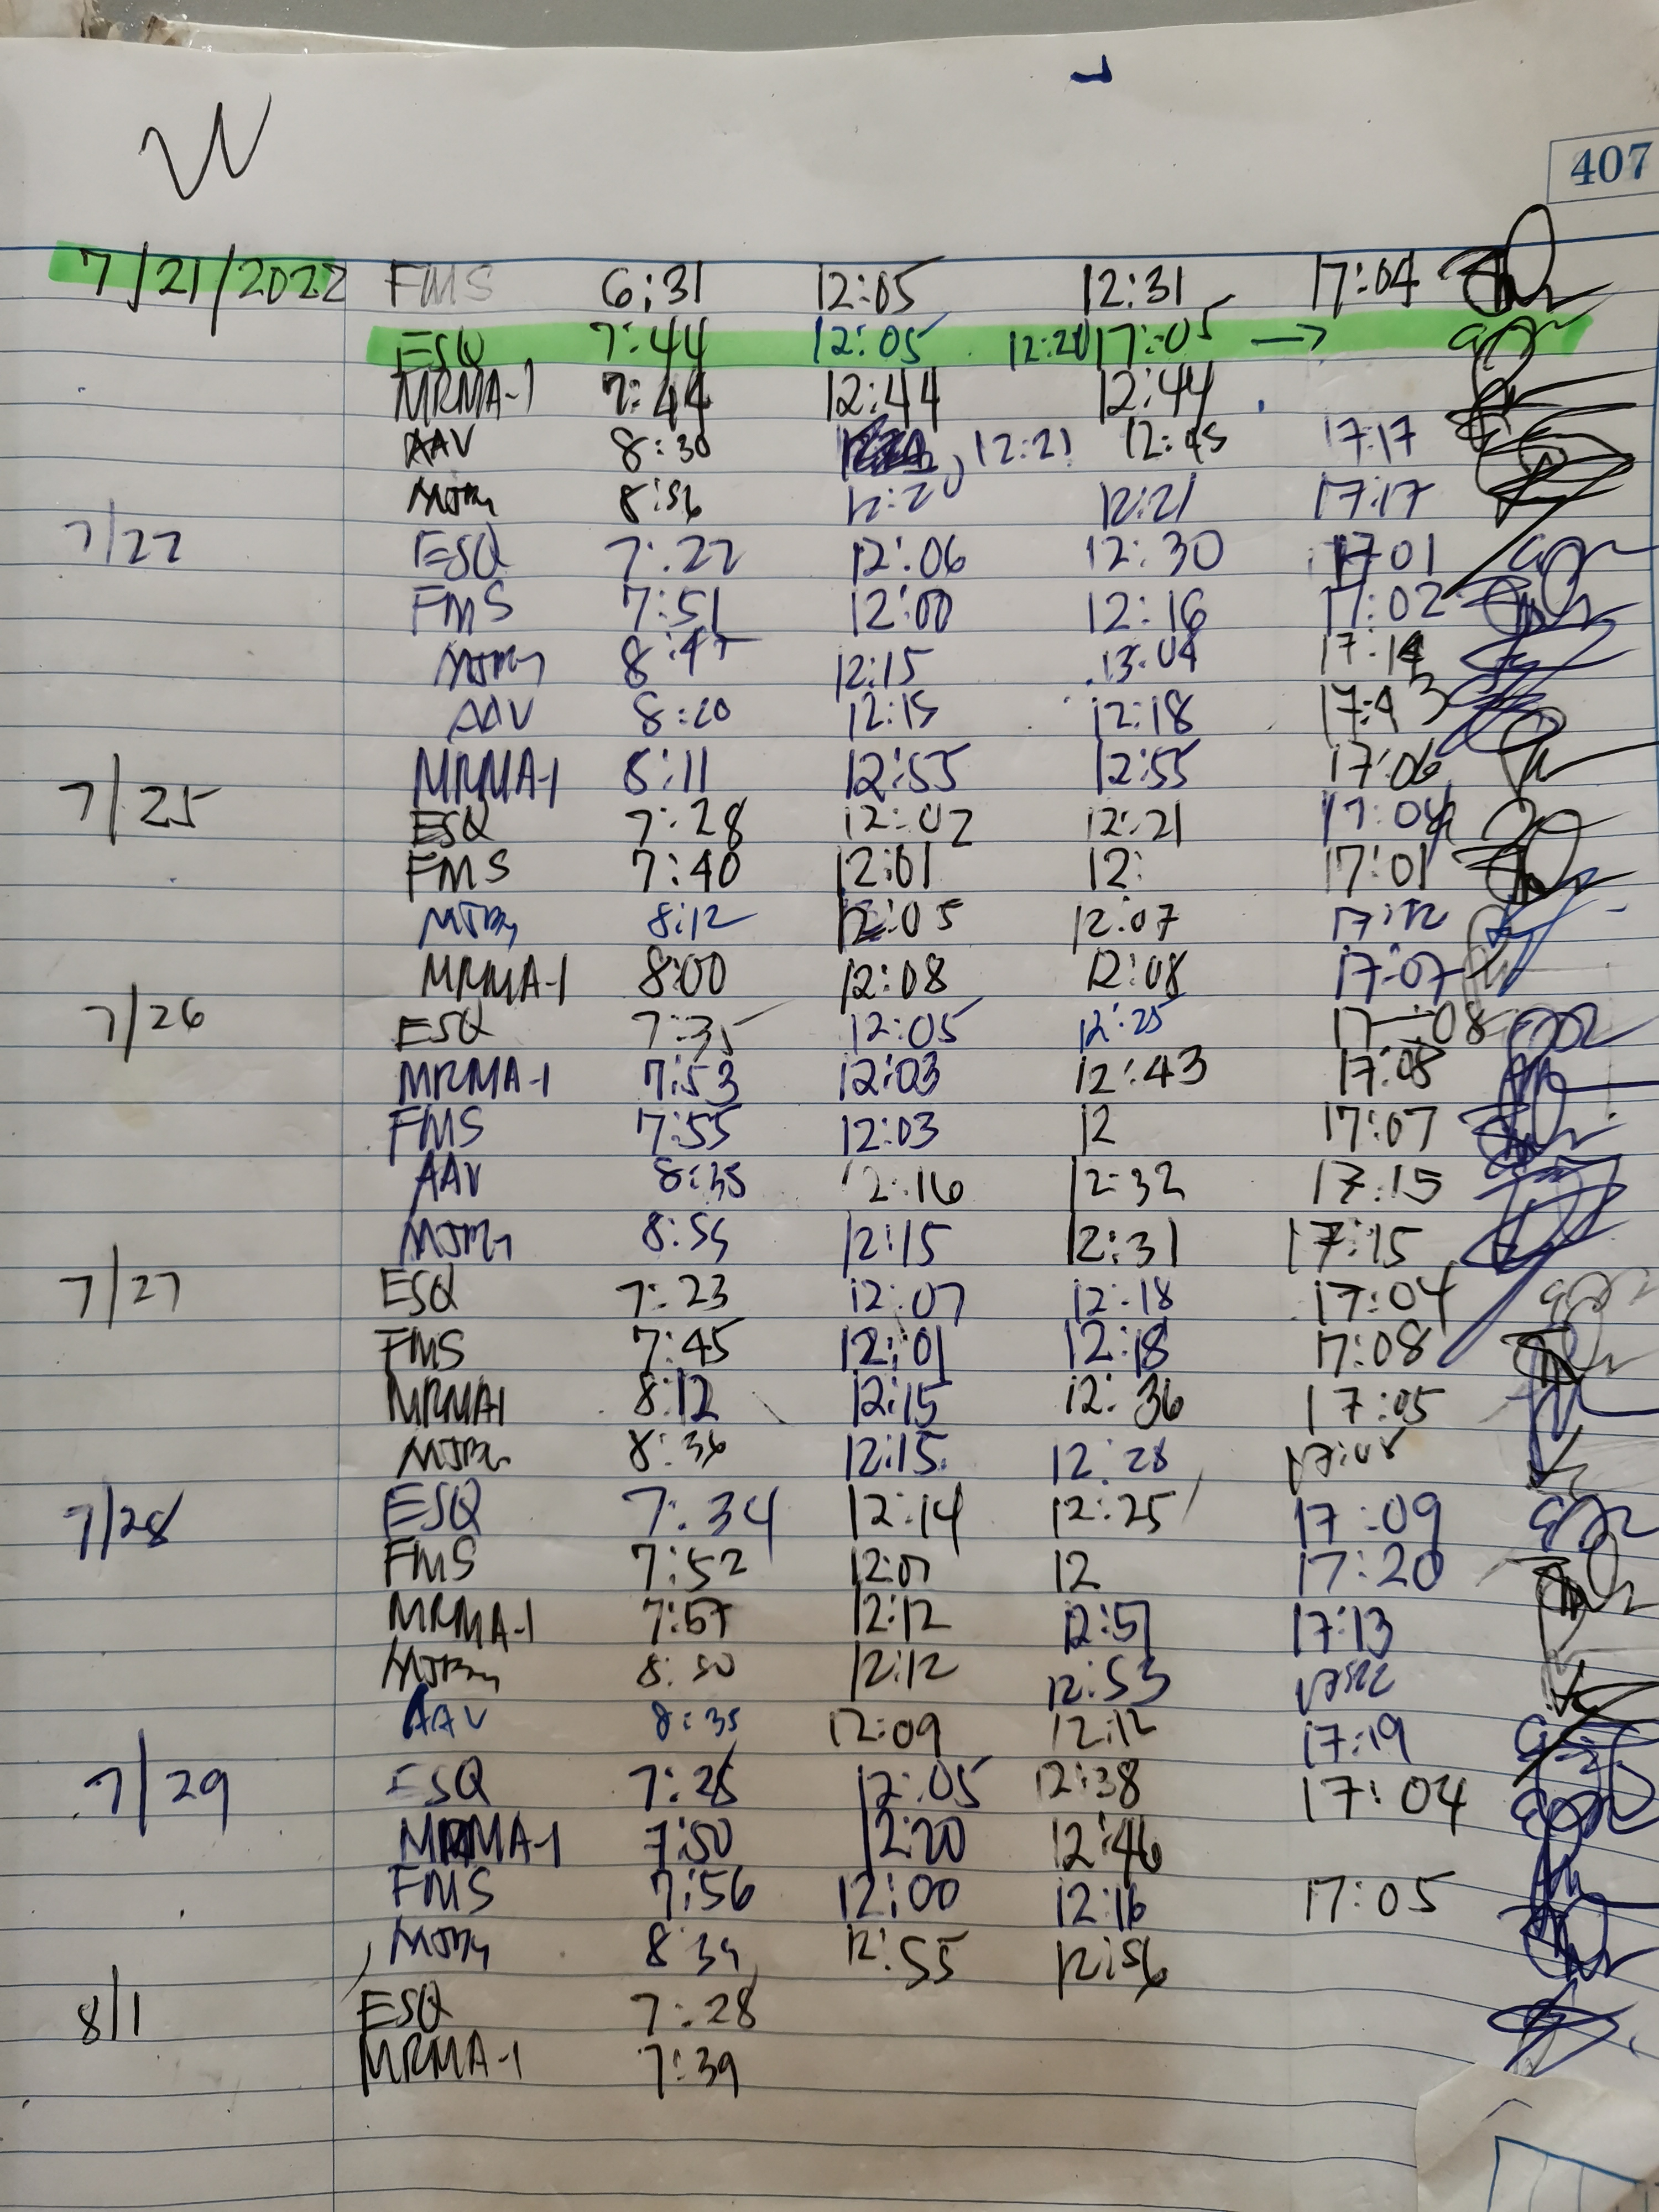 W
407
7/21/2022 FMS 6:31 12:05 12:31 17:04
ESQ 7:44 12:05 12:20 17:05 →
MRMA-1 7:44 12:44 12:44
AAV 8:30 12:21 12:45 17:17
8:56 12:20 12:21 17:17
7/22 ESQ 7:22 12:06 12:30 17:01
FMS 7:51 12:00 12:16 17:02
8:47 12:15 13:04 17:14
AAV 8:20 12:15 12:18 17:43
MRMA-1 8:11 12:55 12:55 17:06
7/25 ESQ 7:28 12:02 12:21 17:04
FMS 7:40 12:01 12: 17:01
8:12 12:05 12:07 17:12
MRMA-1 8:00 12:08 12:08 17:07
7/26 ESQ 7:35 12:05 12:25 17:08
MRMA-1 7:53 12:03 12:43 17:08
FMS 7:55 12:03 12 17:07
AAV 8:35 12:16 12:32 17:15
8:55 12:15 12:31 17:15
7/27 ESQ 7:23 12:07 12:18 17:04
FMS 7:45 12:01 12:18 17:08
MRMA1 8:12 12:15 12:36 17:05
8:36 12:15 12:28 17:08
7/28 ESQ 7:34 12:14 12:25 17:09
FMS 7:52 12:07 12 17:20
MRMA-1 7:57 12:12 12:51 17:13
8:50 12:12 12:53
AAV 8:35 12:09 12:12 17:19
7/29 ESQ 7:28 12:05 12:38 17:04
MRMA-1 7:50 12:20 12:46
FMS 7:56 12:00 12:16 17:05
12:55 12:56
8/1 ESQ 7:28
MRMA-1 7:39